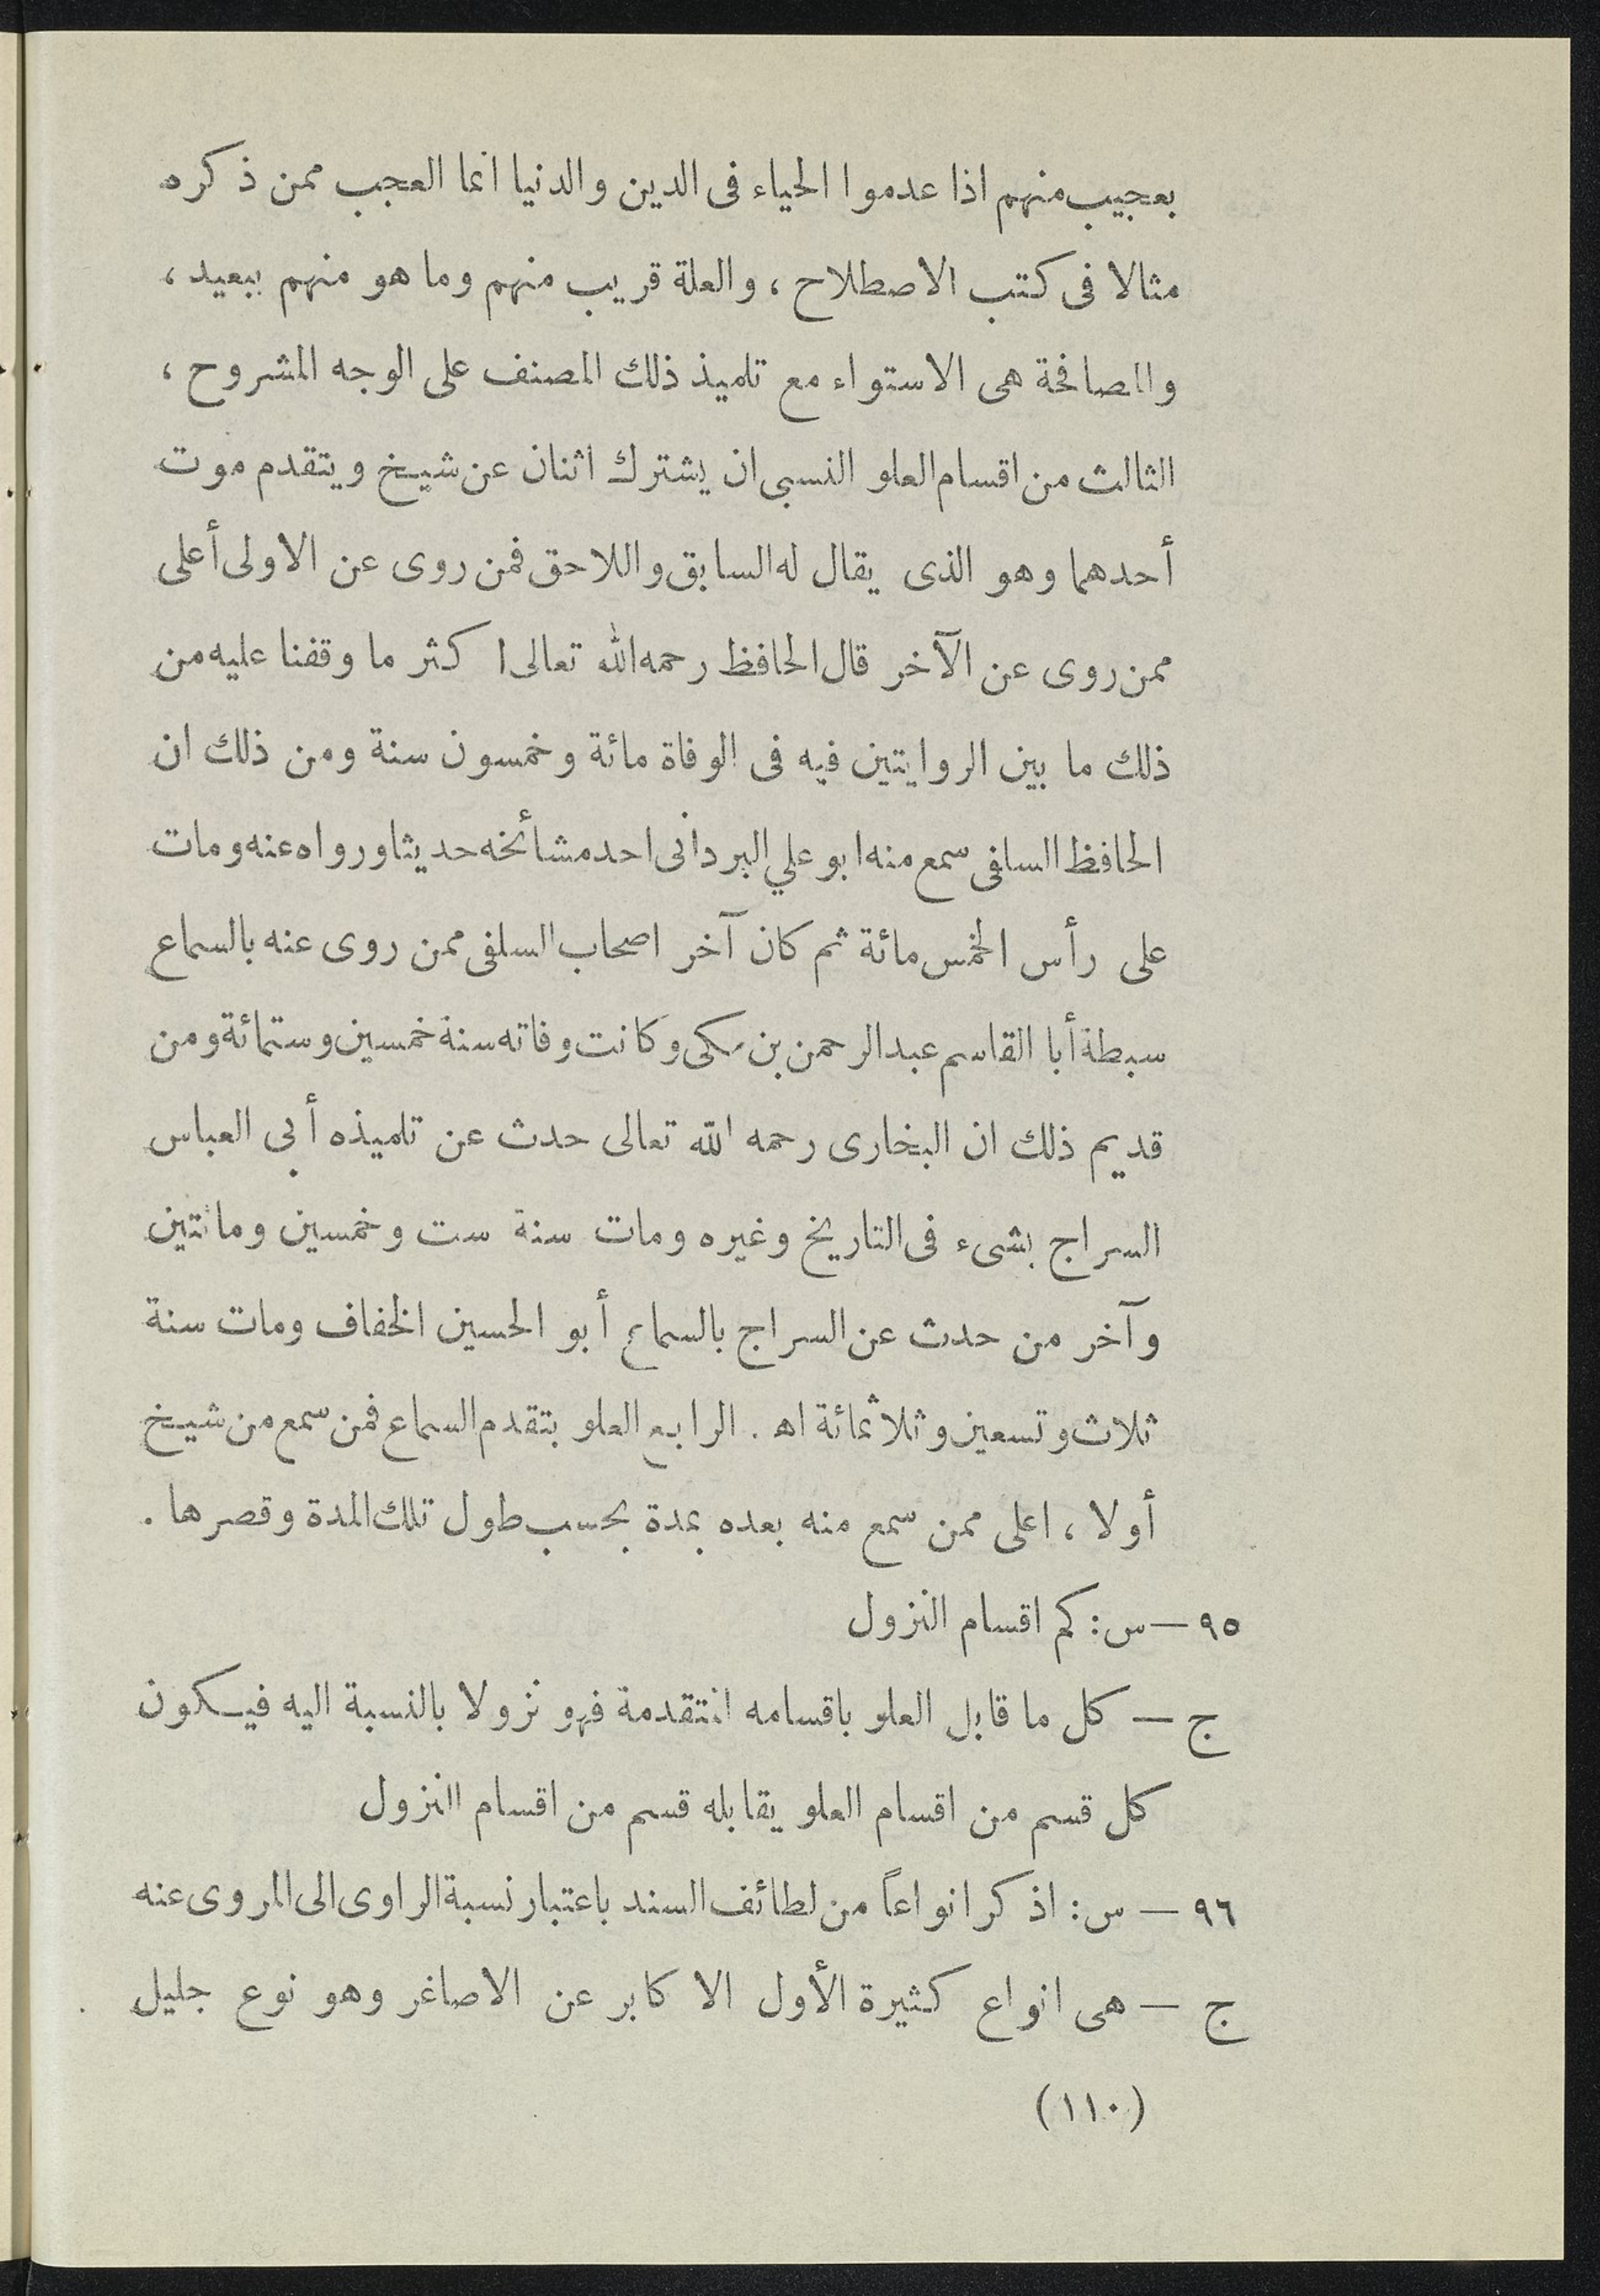 بعجيب منهم اذا عدموا الحياء فى الدين والدنيا انما العجب ممن ذكره
مثالا فى كتب الاصطلاح ، والعلة قريب منهم وما هو منهم ببعيد ،
والمصافحة هى الاستواء مع تلميذ ذلك المصنف على الوجه المشروح ،
الثالث من اقسام العلو النسبى ان يشترك اثنان عن شيخ ويتقدم موت
أحدهما وهو الذى يقال له السابق واللاحق فمن روى عن الاولى أعلى
ممن روى عن الآخر قال الحافظ رحمه الله تعالى اكثر ما وقفنا عليه من
ذلك ما بين الروايتين فيه فى الوفاة مائة وخمسون سنة ومن ذلك ان
الحافظ السلفى سمع منه ابو علي البردانى احد مشائخه حديثا ورواه عنه ومات
على رأس الخمس مائة ثم كان آخر اصحاب السلفى ممن روى عنه بالسماع
سبطة أبا القاسم عبد الرحمن بن مكى وكانت وفاته سنة خمسين وستمائة ومن
قديم ذلك ان البخارى رحمه الله تعالى حدث عن تلميذه أبي العباس
السراج بشىء فى التاريخ وغيره ومات سنة ست وخمسين ومائتين
وآخر من حدث عن السراج بالسماع أبو الحسين الخفاف ومات سنة
ثلاث وتسعين وثلاثمائة اهـ . الرابع العلو بتقدم السماع فمن سمع من شيخ
أولا ، اعلى ممن سمع منه بعده بمدة بحسب طول تلك المدة وقصرها .
٩٥ — س : كم اقسام النزول
ج — كل ما قابل العلو باقسامه المتقدمة فهو نزولا بالنسبة اليه فيكون
كل قسم من اقسام العلو يقابله قسم من اقسام النزول
٩٦ — س : اذكر انواعاً من لطائف السند باعتبار نسبة الراوى الى المروى عنه
ج — هى انواع كثيرة الأول الاكابر عن الاصاغر وهو نوع جليل
(١١٠)